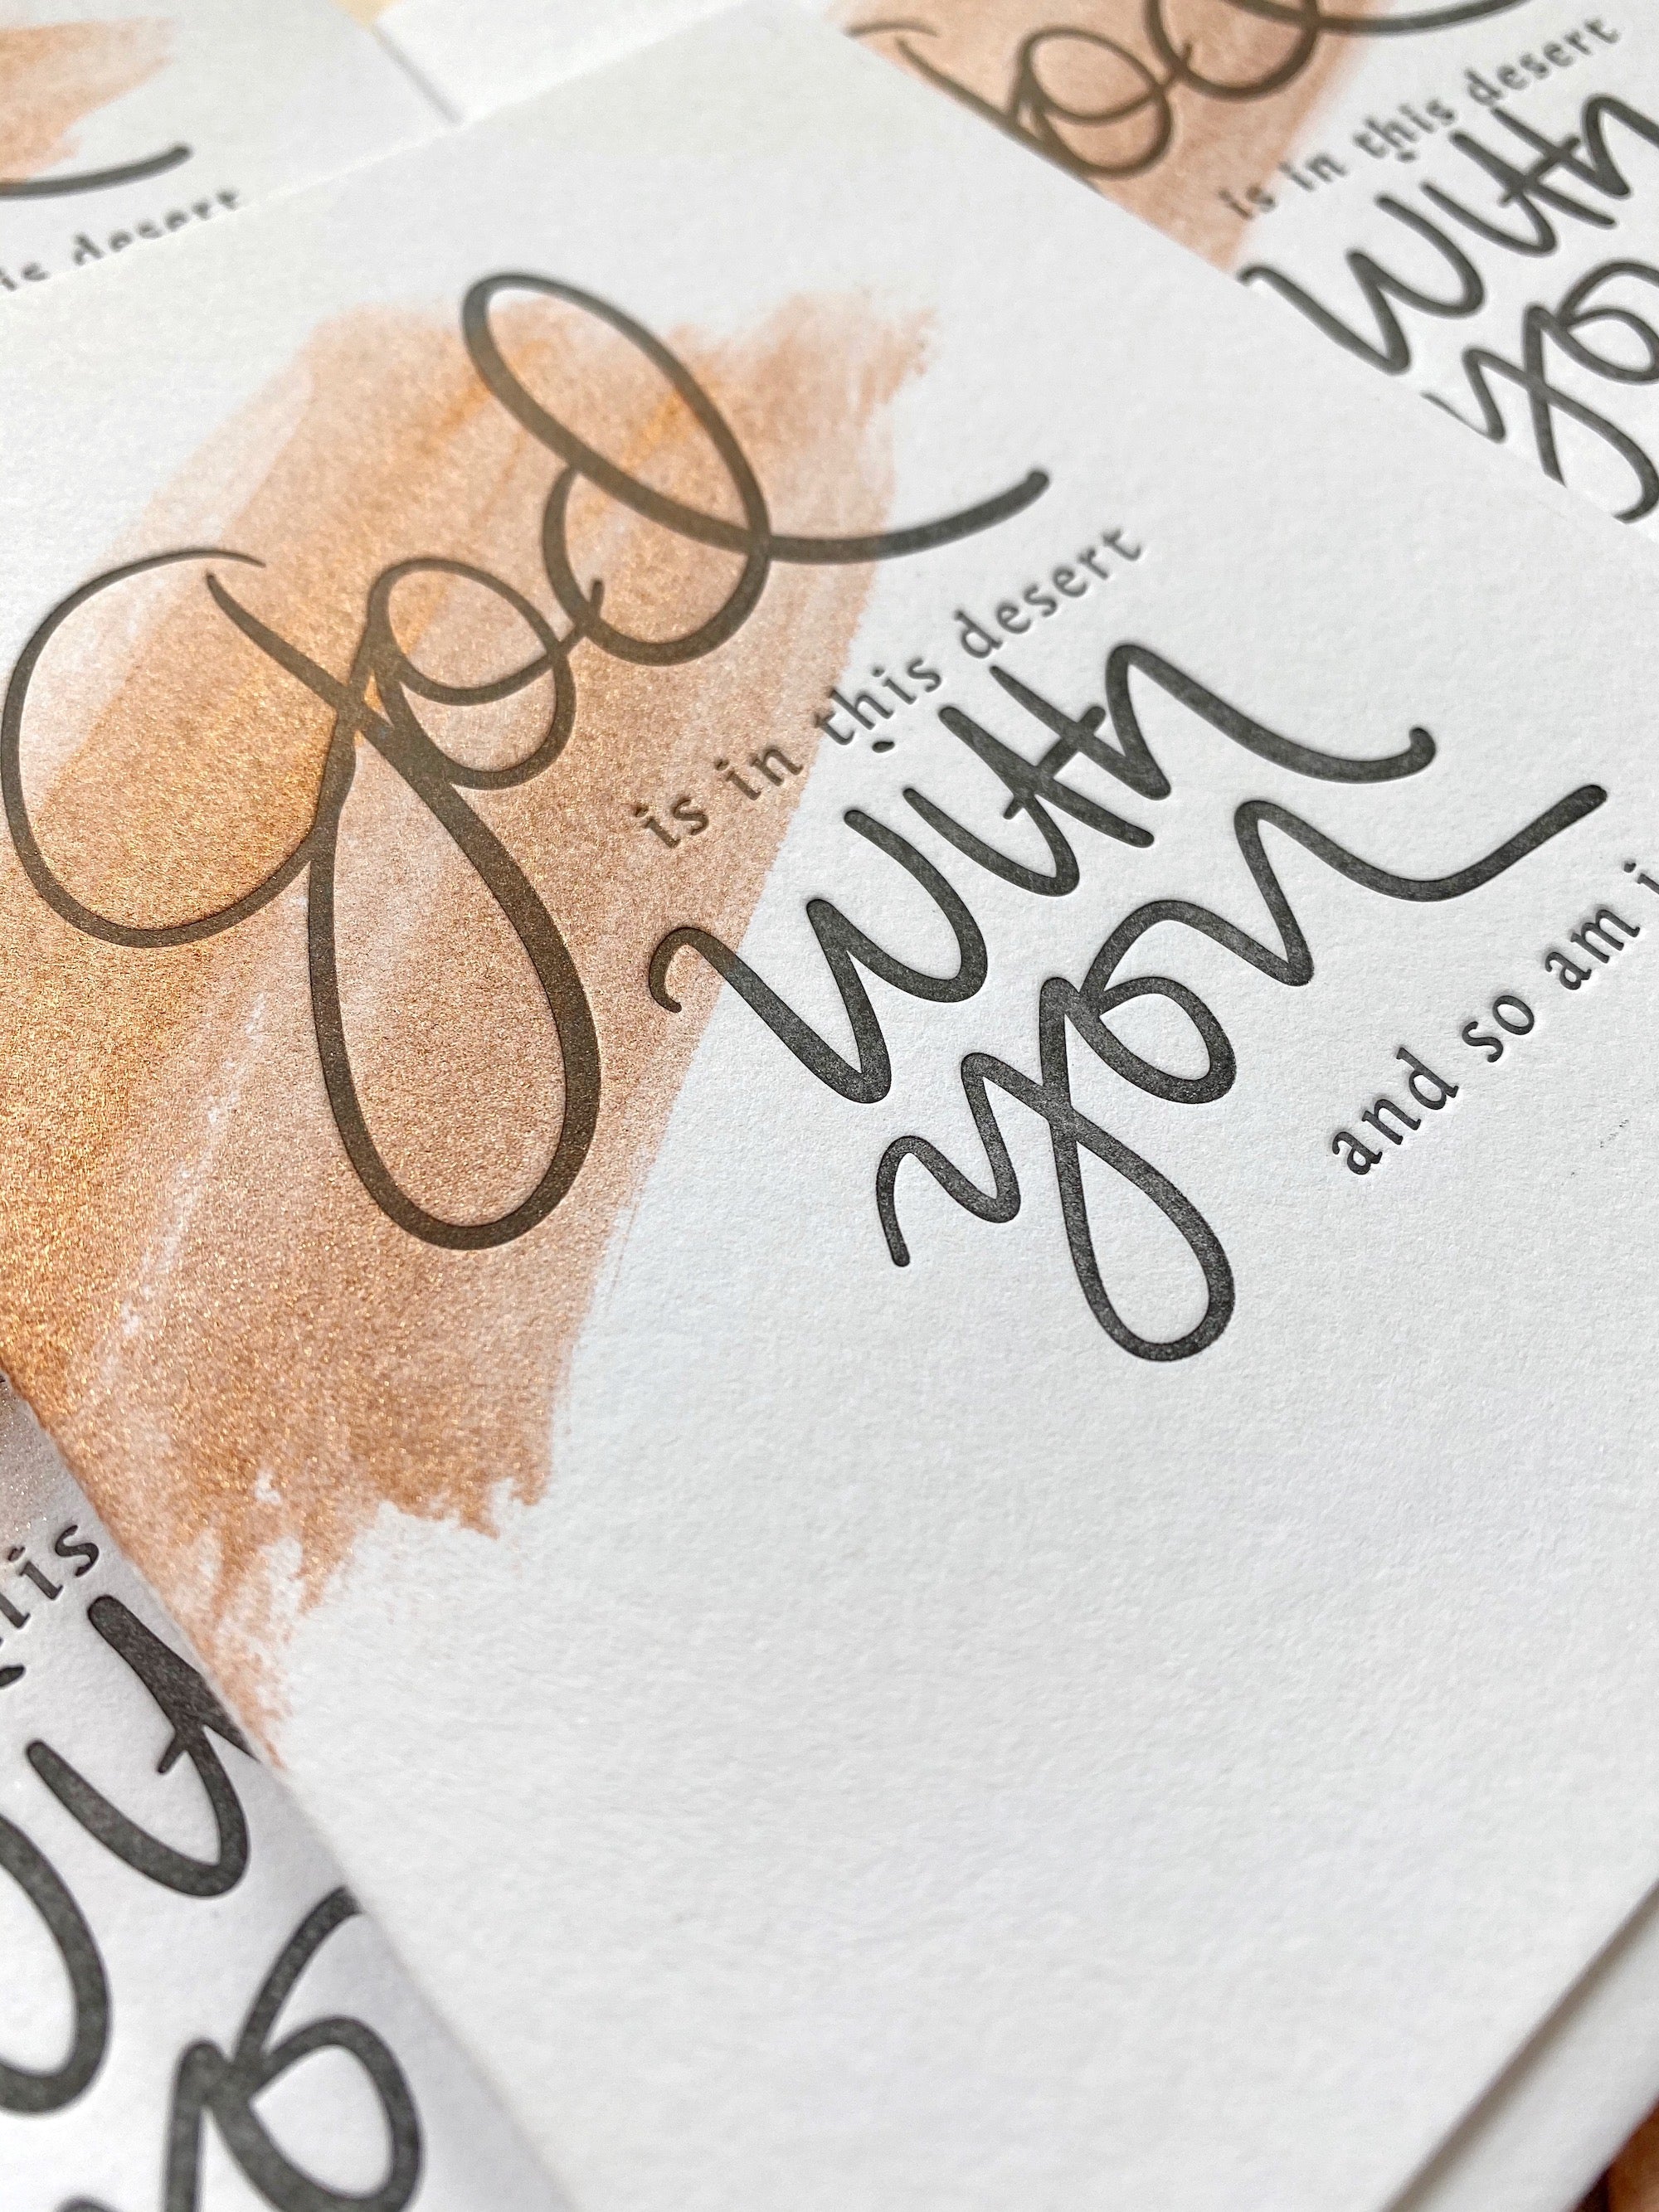 is desert
God
is in this desert
with
you
God
is in this desert
with
you
and so am i